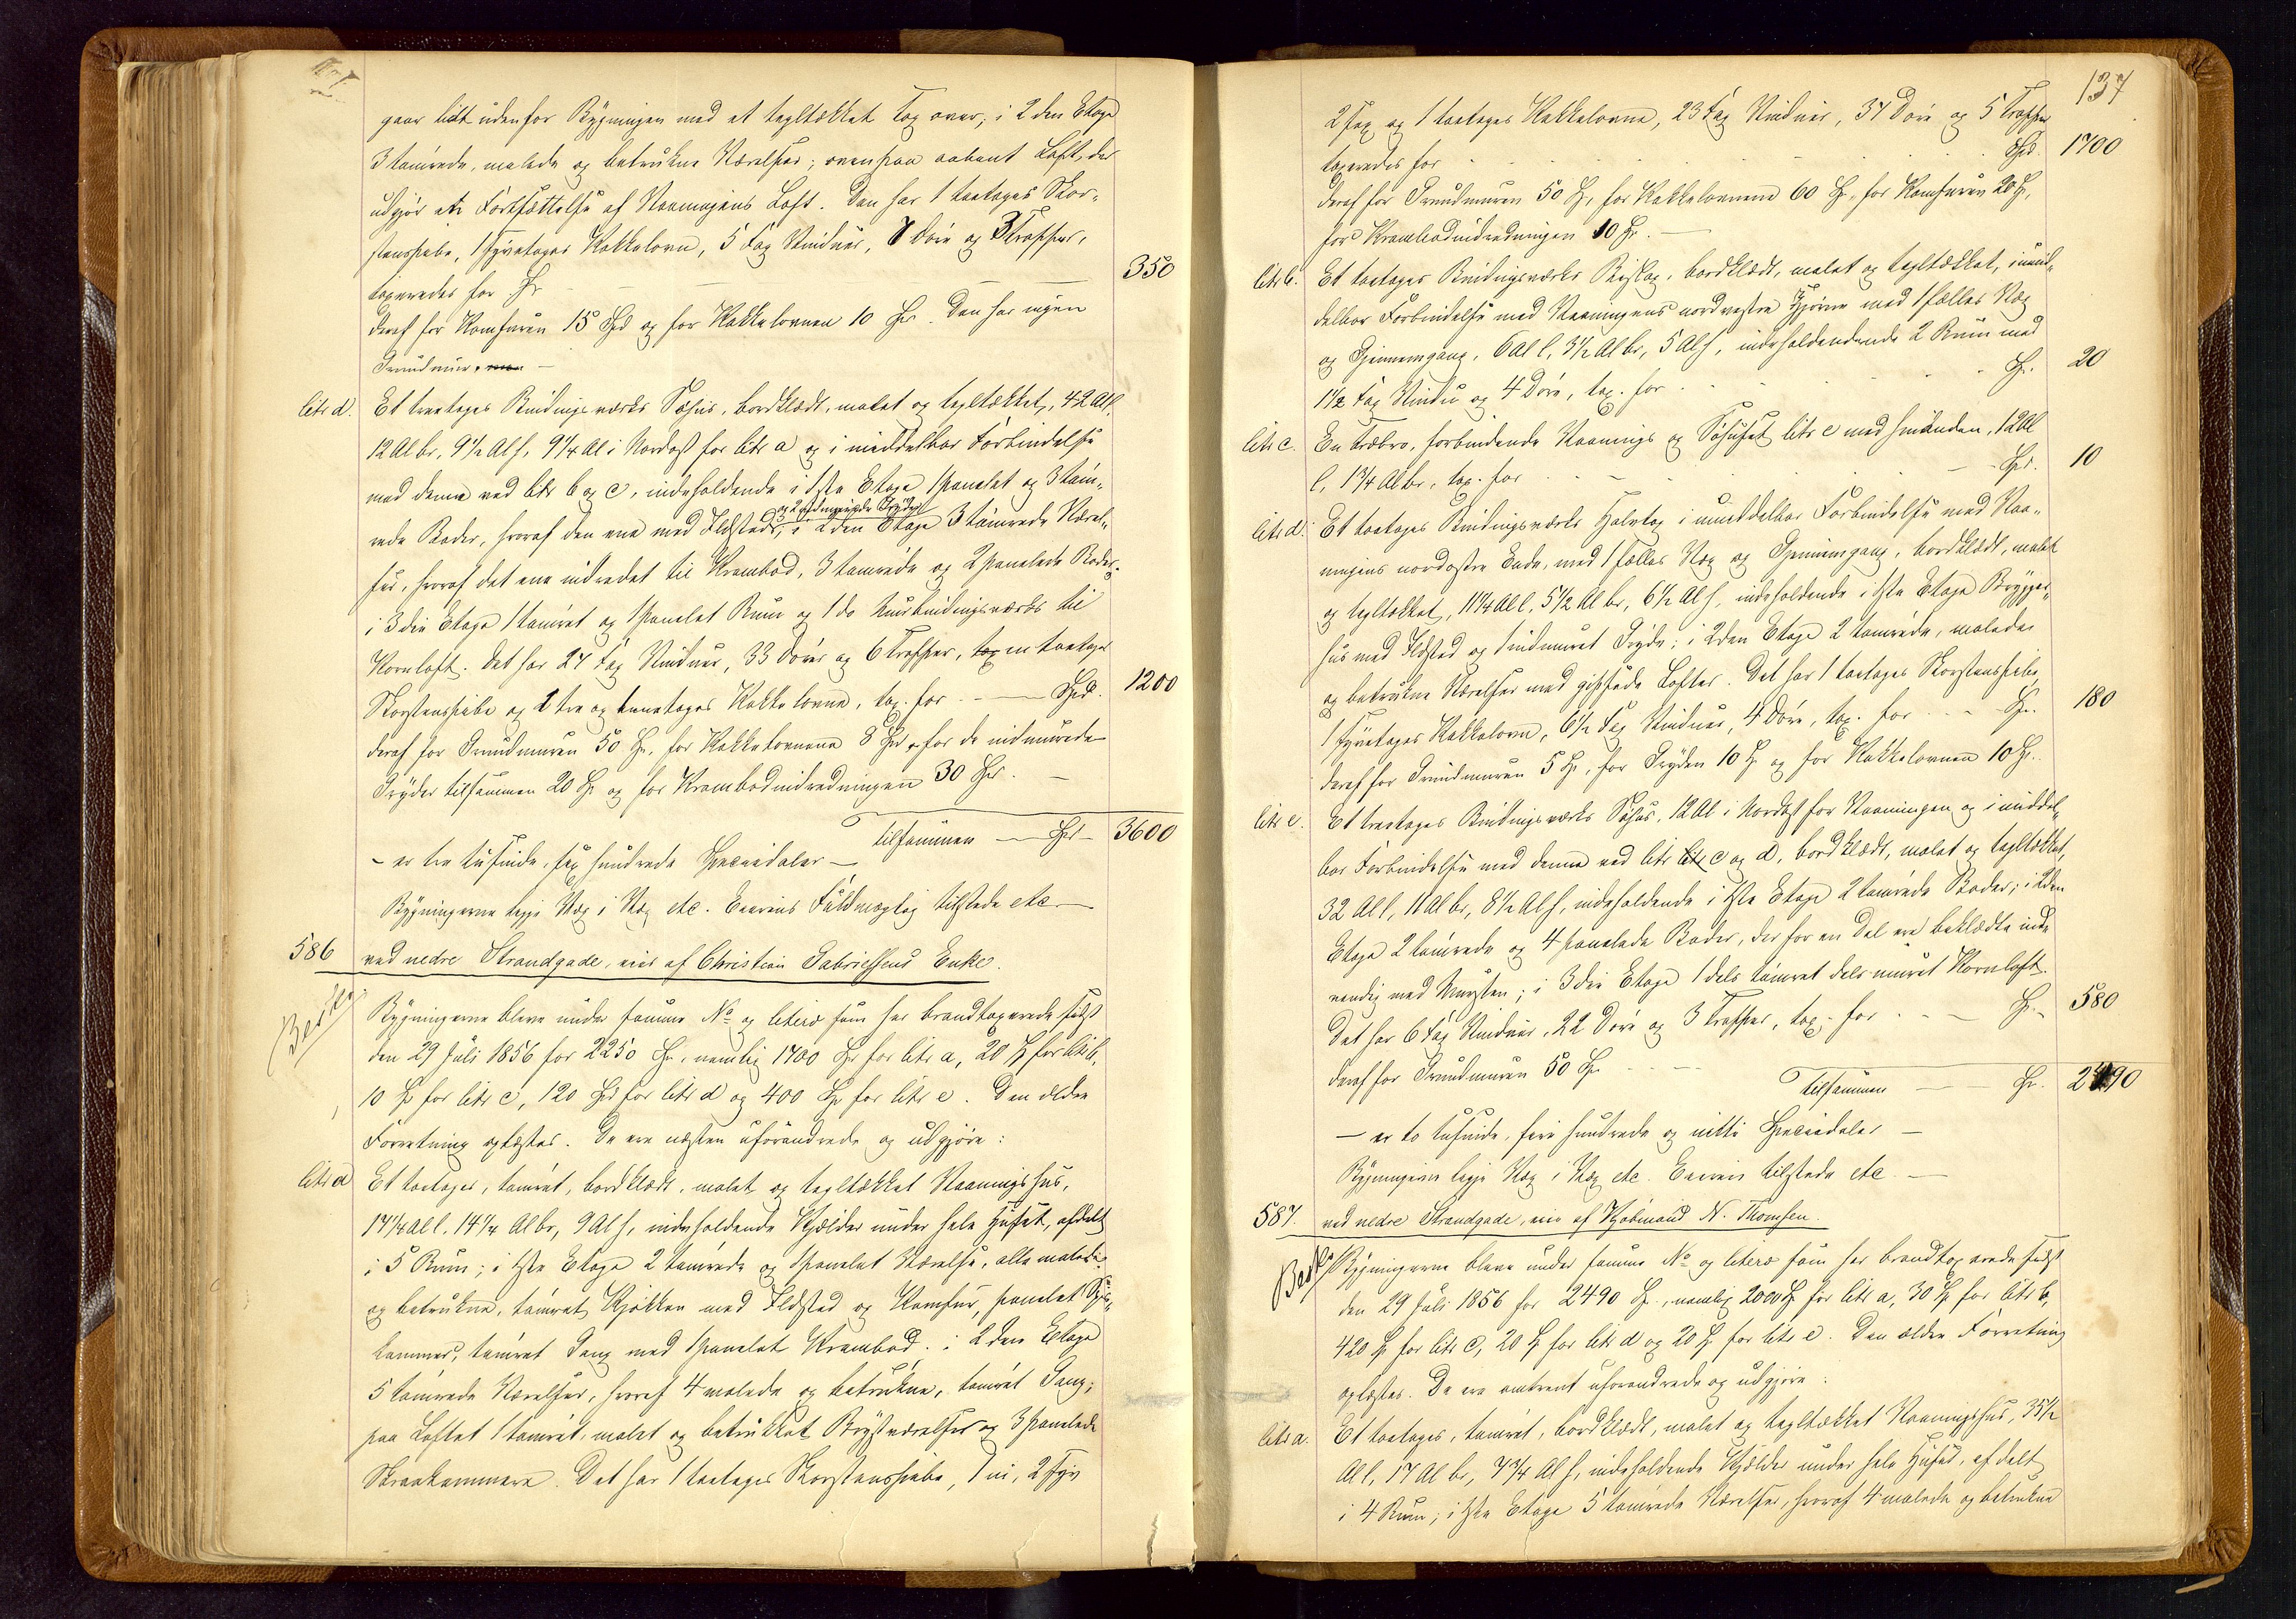 gaar lidt udenfor Bygningen med et tegltækket Tag over; i 2den Etage
3 tømrede, malede og betrukne Værelser; ovenpaa aabent Loft, der
udgjør en Fortsættelse af Vaaningens Loft. Den har 1 toetages Skor-
stenspibe, 1 Fyretages Kakkelovn, 5 Fag Vinduer, 7 Døre og 3 Trapper,
taxeredes for Spd 350
deraf for Komfuren 15 Spd og for Kakkelovnen 10 Spd. Den har ingen
Grundmur.
litr d. Et treetages Bindingsværks Søhus, bordklædt, malet og tegltækket, 42 Al l.
12 Al br, 9 1/2 Al h, 9 1/4 Al i Nordost for litr a og i middelbar Forbindelse
med denne ved litr b og c, indeholdende i 1ste Etage 1 panelet og 3 tøm-
rede Boder, hvoraf den ene med Ildsted og 2 indmurede Gryder, i 2den Etage 3 tømrede Værel-
ser, hvoraf det ene indredet til Krambod, 3 tømrede og 2 panelede Boder;
i 3die Etage 1 tømret og 1 panelet Rum og 1 do Muurbindingsværks til
Kornloft. Det har 24 Fag Vinduer, 33 Døre og 6 Trapper, en toetages
Skorstenspibe og 1 tre og 1 enetages Kakkelovne, tax. for Spd. 1200
deraf for Grundmuren 50 Spd, for Kakkelovnene 8 Spd, for de indmurede
Gryder tilsammen 20 Spd og for Krambodindredningen 30 Spd. —
Tilsammen — Spd — 3600
- er tre tusinde, sex hundrede Speciedaler —
Bygningerne ligge Væg i Væg etc. Eierens Fuldmægtig tilstede etc —
586 ved nedre Strandgade, eies af Christian Gabrielsens Enke.
Besk.
Bygningerne bleve under samme No og litera som her brandtaxerede sidst
den 29 Juli 1856 for 2250 Spd, nemlig 1700 Spd for litr a, 20 Spd for litr b,
10 Spd for litr c, 120 Spd for litr d og 400 Spd for litr e. Den ældre
Forretning oplæstes. De ere næsten uforandrede og udgjøre:
litr a Et toetages, tømret, bordklædt, malet og tegltækket Vaaningshus,
17 1/4 Al l. 14 1/4 Al br, 9 Al h, indeholdende Kjælder under hele Huset, afdelt
i 5 Rum; i 1ste Etage 2 tømrede og 1 panelet Værelse, alle malede
og betrukne, tømret Kjøkken med Ildsted og Komfur, panelet Spis-
kammer, tømret Gang med 1 panelet Krambod; i 2den Etage
5 tømrede Værelser, hvoraf 4 malede og betrukne, tømret Gang;
paa Loftet 1 tømret, malet og betrukket Brystværelse og 3 panelede
Skraakammere. Det har 1 toetages Skorstenspibe, 1 ni, 2 Fyr
137
2 Sex og 1 toetages Kakkelovne, 23 Fag Vinduer, 34 Døre og 5 Trapper
taxeredes for Spd. 1700
deraf for Grundmuren 50 Spd, for Kakkelovnene 60 Spd, for Komfuren 20 Spd,
for Krambodindredningen 10 Spd. —
litr b. Et toetages Bindingsværks Bislag, bordklædt, malet og tegltækket, i umid-
delbar Forbindelse med Vaaningens nordvestre Hjørne med 1 fælles Væg
og Gjennemgang, 6 Al l, 3 1/2 Al br, 5 Al h, indeholdendende 2 Rum med
1 1/2 Fag Vindu og 4 Døre, tax. for Spd. 20
litr c. En Træbro, forbindende Vaanings og Søhuset litr e med hinanden, 12 Al
l, 1 3/4 Al br, tax. for Spd. 10
litr d. Et toetages Bindingsværks Halvtag i umiddelbar Forbindelse med Vaa-
ningens nordostre Ende, med 1 fælles Væg og Gjennemgang, bordklædt, malet
og tegltækket, 11 1/4 Al l, 5 1/2 Al br, 6 1/2 Al h, indeholdende i 1ste Etage Brygger-
hus med Ildsted og indmuret Gryde; i 2den Etage 2 tømrede, malede
og betrukne Værelser med gipsede Lofter. Det har 1 toetages Skorstenspibe,
1 Fyretages Kakkelovn, 6 1/2 Fag Vinduer, 4 Døre, tax. for Spd. 180
deraf for Grundmuren 5 Spd, for Gryden 10 Spd og for Kakkelovnen 10 Spd.
litr e. Et treetages Bindingsværks Søhus, 12 Al i Nordost for Vaaningen og i middel-
bar Forbindelse med denne ved litr c og d, bordklædt, malet og tegltækket,
32 Al l, 11 Al br, 8 1/2 Al h, indeholdende i 1ste Etage 2 tømrede Boder; i 2den
Etage 2 tømrede og 4 panelede Boder, der for en Del ere beklædte ind-
vendig med Mursten; i 3die Etage 1 dels tømret dels muret Kornloft.
Det har 6 Fag Vinduer, 22 Døre og 3 Trapper, tax. for Spd. 580
deraf for Grundmuren 50 Spd
Tilsammen — Spd. 2490
— er to tusinde, fire hundrede og nitti Speciedaler —
Bygningerne ligge Væg i Væg etc. Eieren tilstede etc. —
587. ved nedre Strandgade, eies af Kjøbmand N. Thomsen.
Besk.
Bygningerne bleve under samme No og litera som her brandtaxerede sidst
den 29 Juli 1856 for 2490 Spd, nemlig 2000 Spd for litr a, 30 Spd for litr b,
420 Spd for litr c, 20 Spd for litr d og 20 Spd for litr e. Den ældre Forretning
oplæstes. De ere omtrent uforandrede og udgjøre:
litr a. Et toetages, tømret, bordklædt, malet og tegltækket Vaaningshus, 35 1/2
Al l, 17 Al br, 7 3/4 Al h, indeholdende Kjælder under hele Huset, afdelt
i 4 Rum; i 1ste Etage 5 tømrede Værelser, hvoraf 4 malede og betrukne